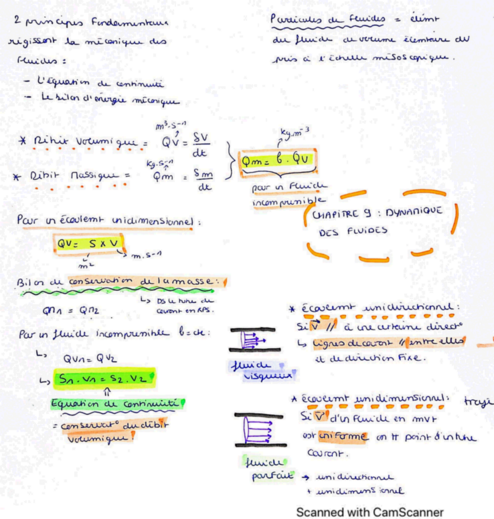 2 principes Fondamentaux
régissent la mécanique des
Fluides :
- L'équation de continuité
- Le bilan d'énergie mécanique
Particules de Fluides = élémt
du fluide de volume élémtaire dV
pris à l'échelle mésoscopique.
m³.s⁻¹
* Débit volumique = Qv = δV/dt
kg.s⁻¹
* Débit Massique = Qm = δm/dt
kg.m⁻³
Qm = ρ . Qv
pour un Fluide
incompressible
CHAPITRE 9 : DYNAMIQUE
DES FLUIDES
Pour un écoulemt unidimensionnel :
Qv = S x V
m²
m.s⁻¹
Bilan de conservation de la masse :
Qm1 = Qm2
↳ Ds le tube de
courant en RPS.
Par un fluide incompressible ρ = cte :
↳ Qv1 = Qv2
↳ S1.V1 = S2.V2
⇑
Equation de continuité
= conservat° du débit
volumique
* écoulemt unidirectionnel :
Si V⃗ // à une certaine direct°
↳ lignes de courant // entre elles
et de direction Fixe.
fluide
visqueux
* écoulemt unidimensionnel :
Si V⃗ d'un Fluide en mvt
est uniforme en tt point d'un tube
courant.
fluide
parfait → unidirectionnel
+ unidimensionnel
Scanned with CamScanner